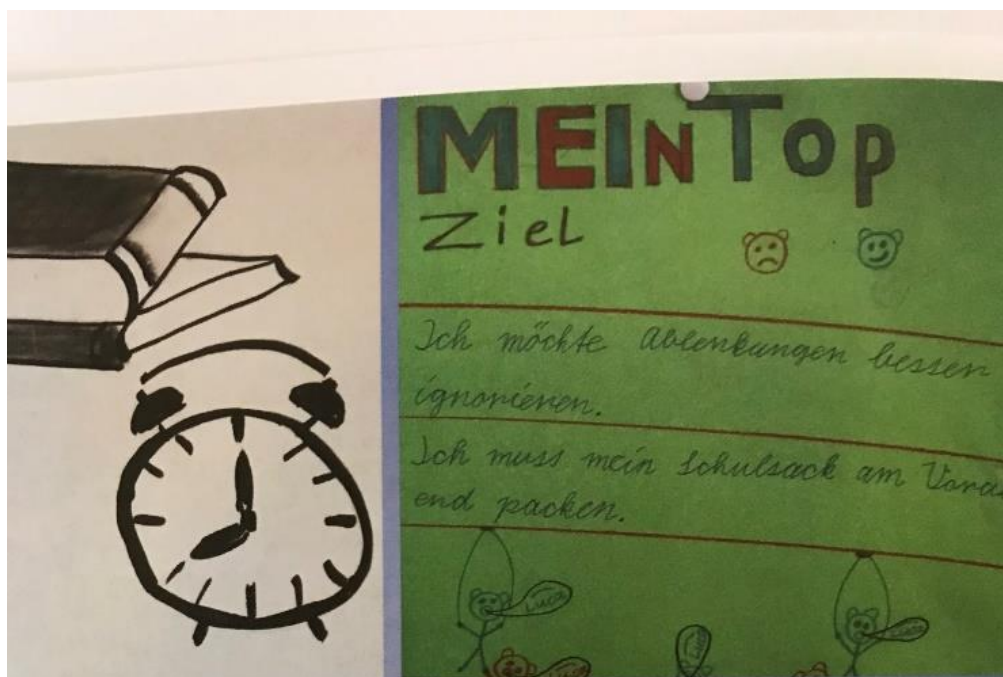 MEIN TOP
ZieL
Ich möchte Ablenkungen besser
ignorieren.
Ich muss mein Schulsack am Vora
end packen.
Luca